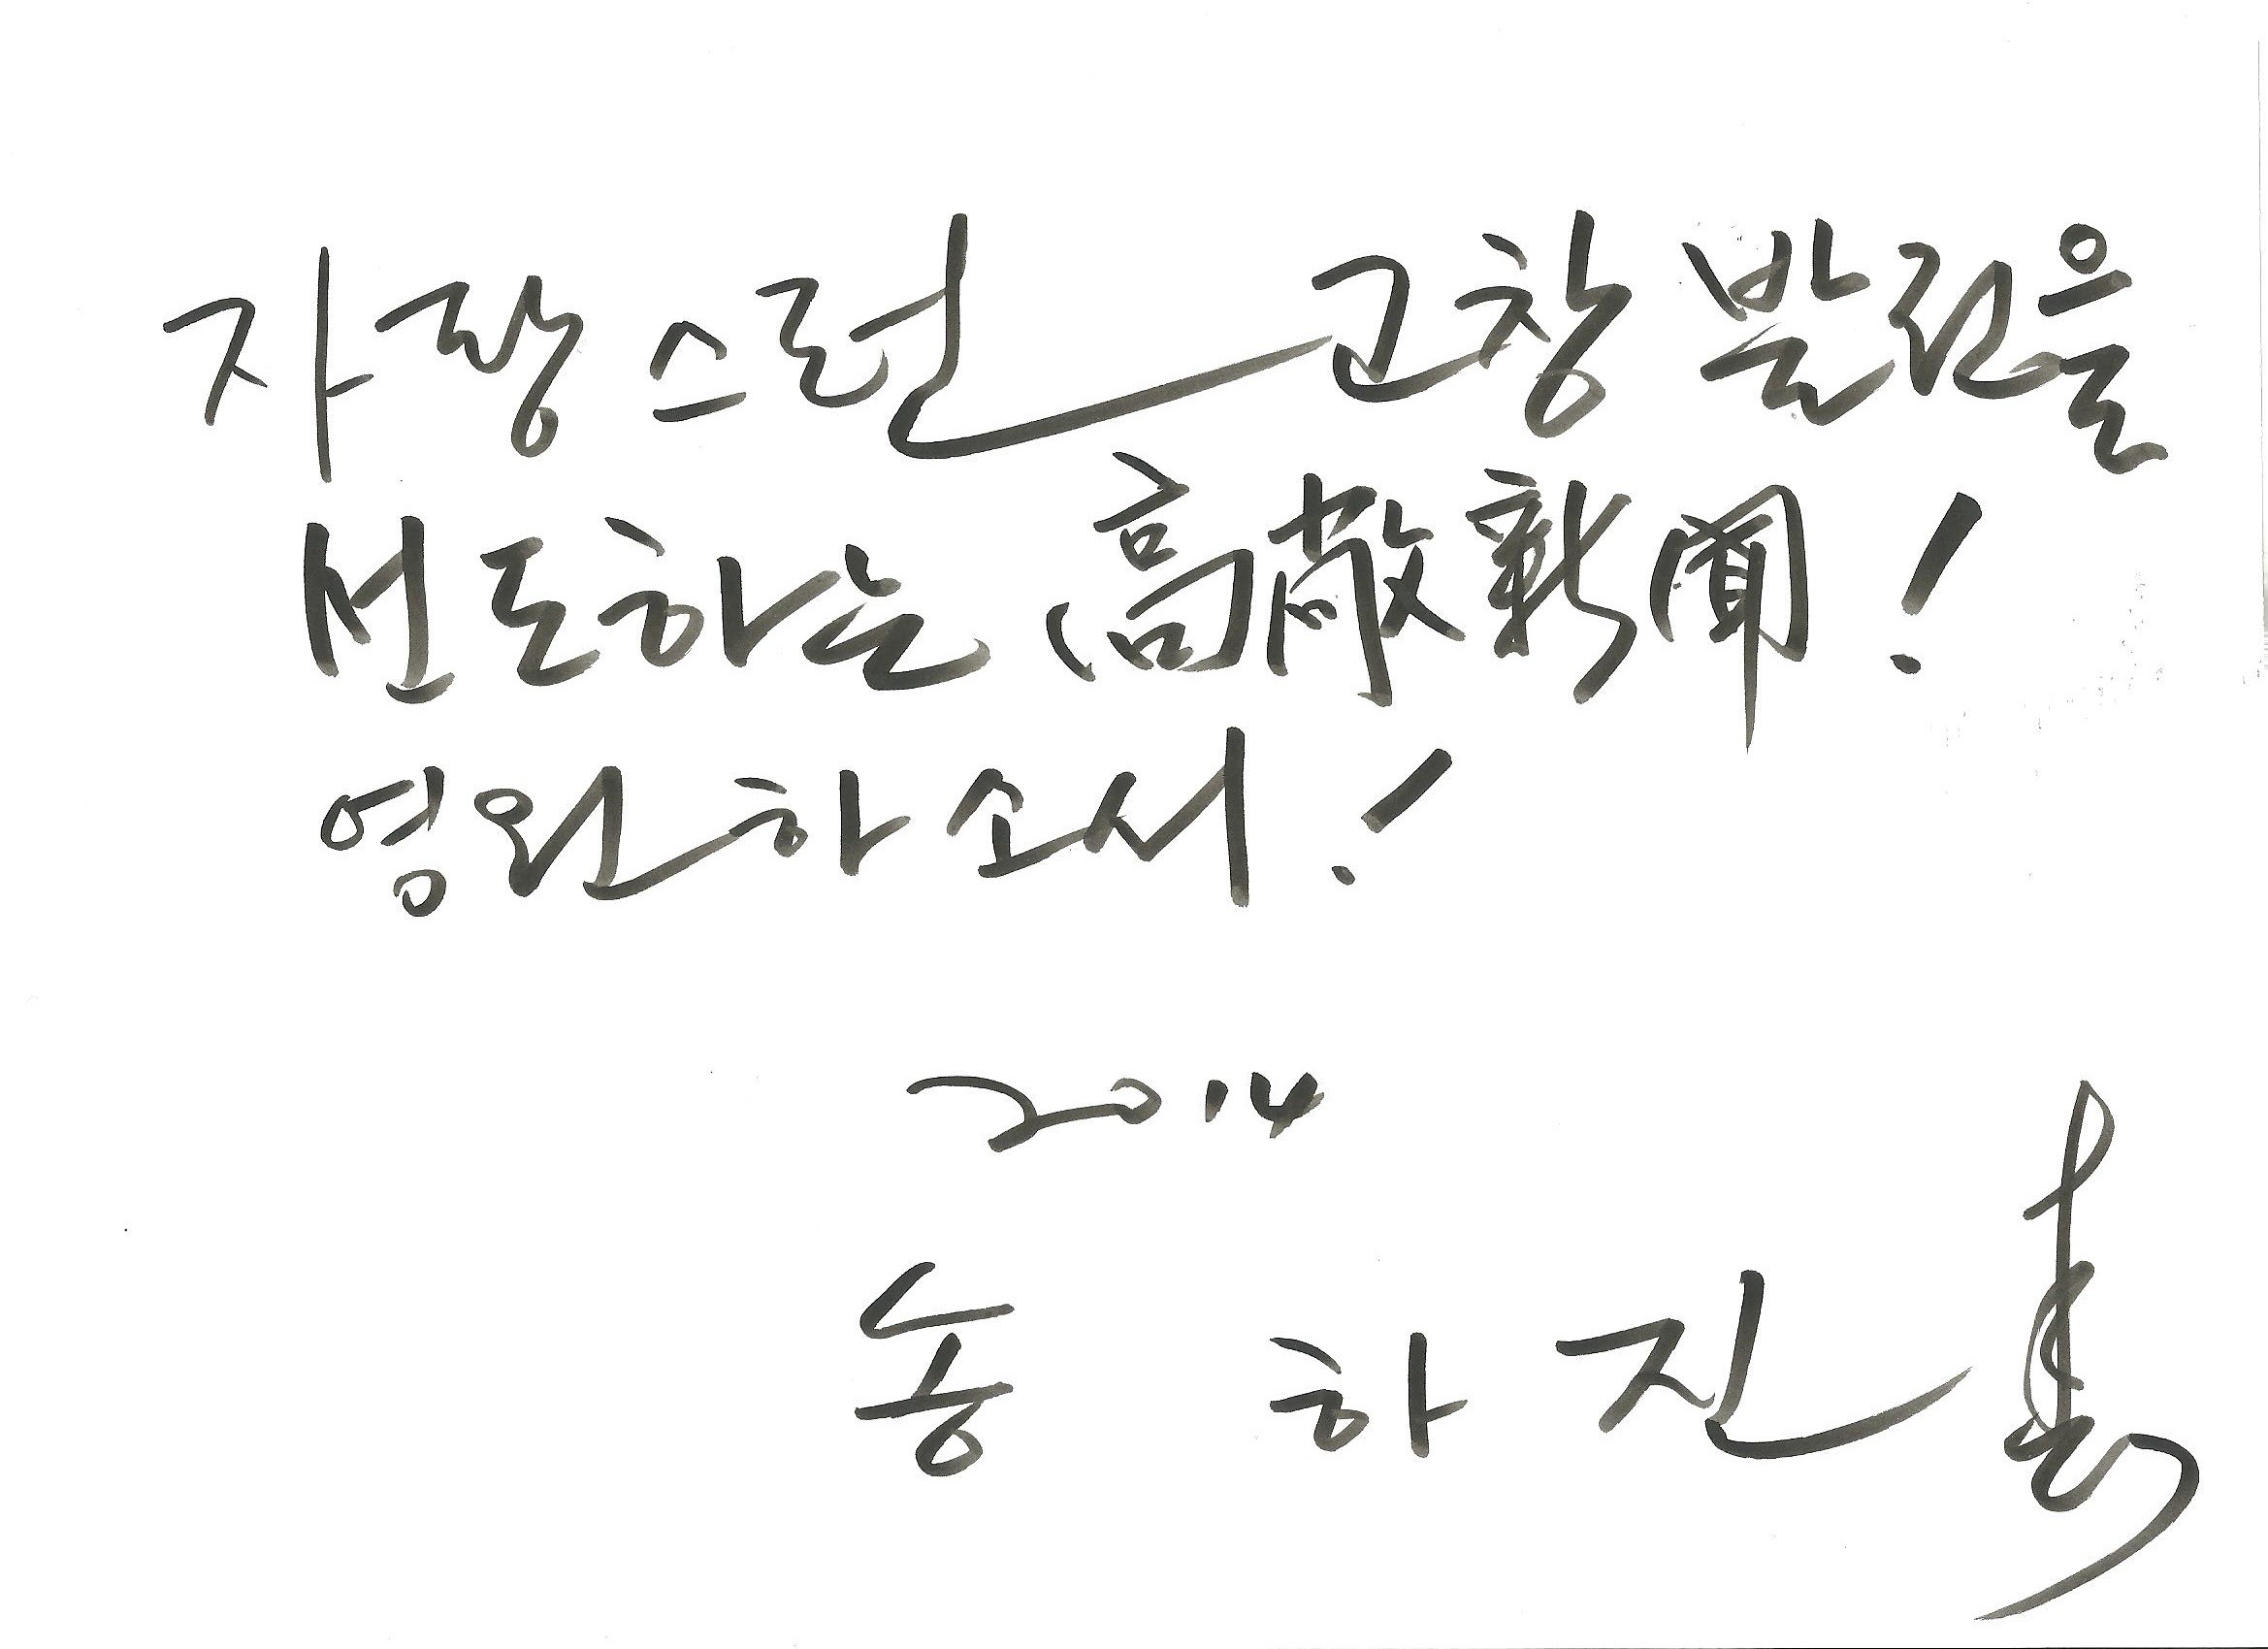 자랑스런 고창 발전을
선도하는 高敞新聞!
영원하소서!
2014
송 하 진